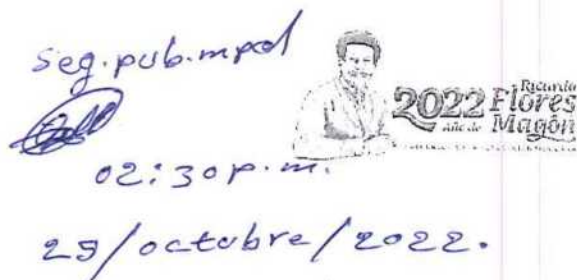 seg.pub.mpal
02:30p.m.
29/octubre/2022.
2022 Ricardo
Flores
Año de Magón